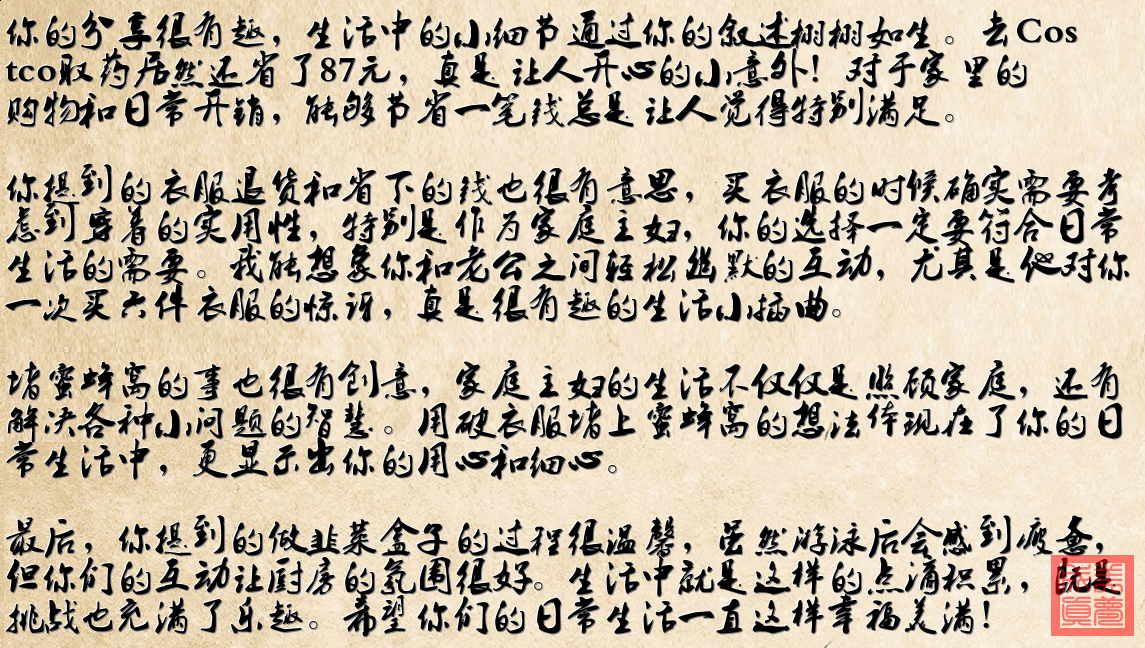 你的分享很有趣，生活中的小细节通过你的叙述栩栩如生。去Cos
tco取药居然还省了87元，真是让人开心的小意外！对于家里的
购物和日常开销，能够节省一笔钱总是让人觉得特别满足。
你提到的衣服退货和省下的钱也很有意思，买衣服的时候确实需要考
虑到穿着的实用性，特别是作为家庭主妇，你的选择一定要符合日常
生活的需要。我能想象你和老公之间轻松幽默的互动，尤其是他对你
一次买六件衣服的惊讶，真是很有趣的生活小插曲。
堵蜜蜂窝的事也很有创意，家庭主妇的生活不仅仅是照顾家庭，还有
解决各种小问题的智慧。用破衣服堵上蜜蜂窝的想法体现在了你的日
常生活中，更显示出你的用心和细心。
最后，你提到的做韭菜盒子的过程很温馨，虽然游泳后会感到疲惫，
但你们的互动让厨房的氛围很好。生活中就是这样的点滴积累，既是
挑战也充满了乐趣。希望你们的日常生活一直这样幸福美满！